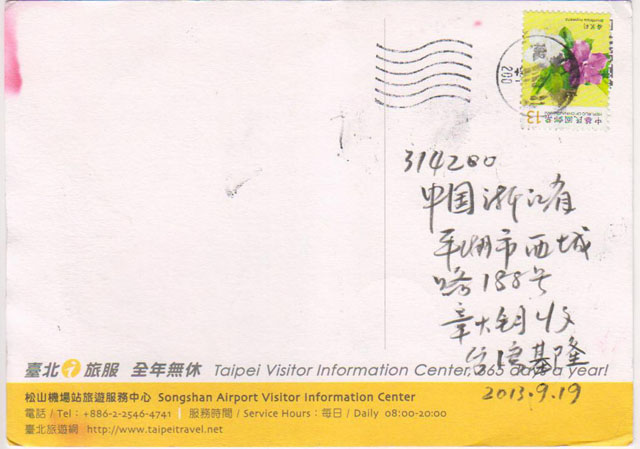 13
中華民國郵票
260
314200
中国浙江省
平湖市西城
路188号
章大钥收
基隆
2013.9.19
臺北 i 旅服 全年無休 Taipei Visitor Information Center, 365 days a year!
松山機場站旅遊服務中心 Songshan Airport Visitor Information Center
電話 / Tel : +886-2-2546-4741 | 服務時間 / Service Hours : 每日 / Daily 08:00-20:00
臺北旅遊網 http://www.taipeitravel.net